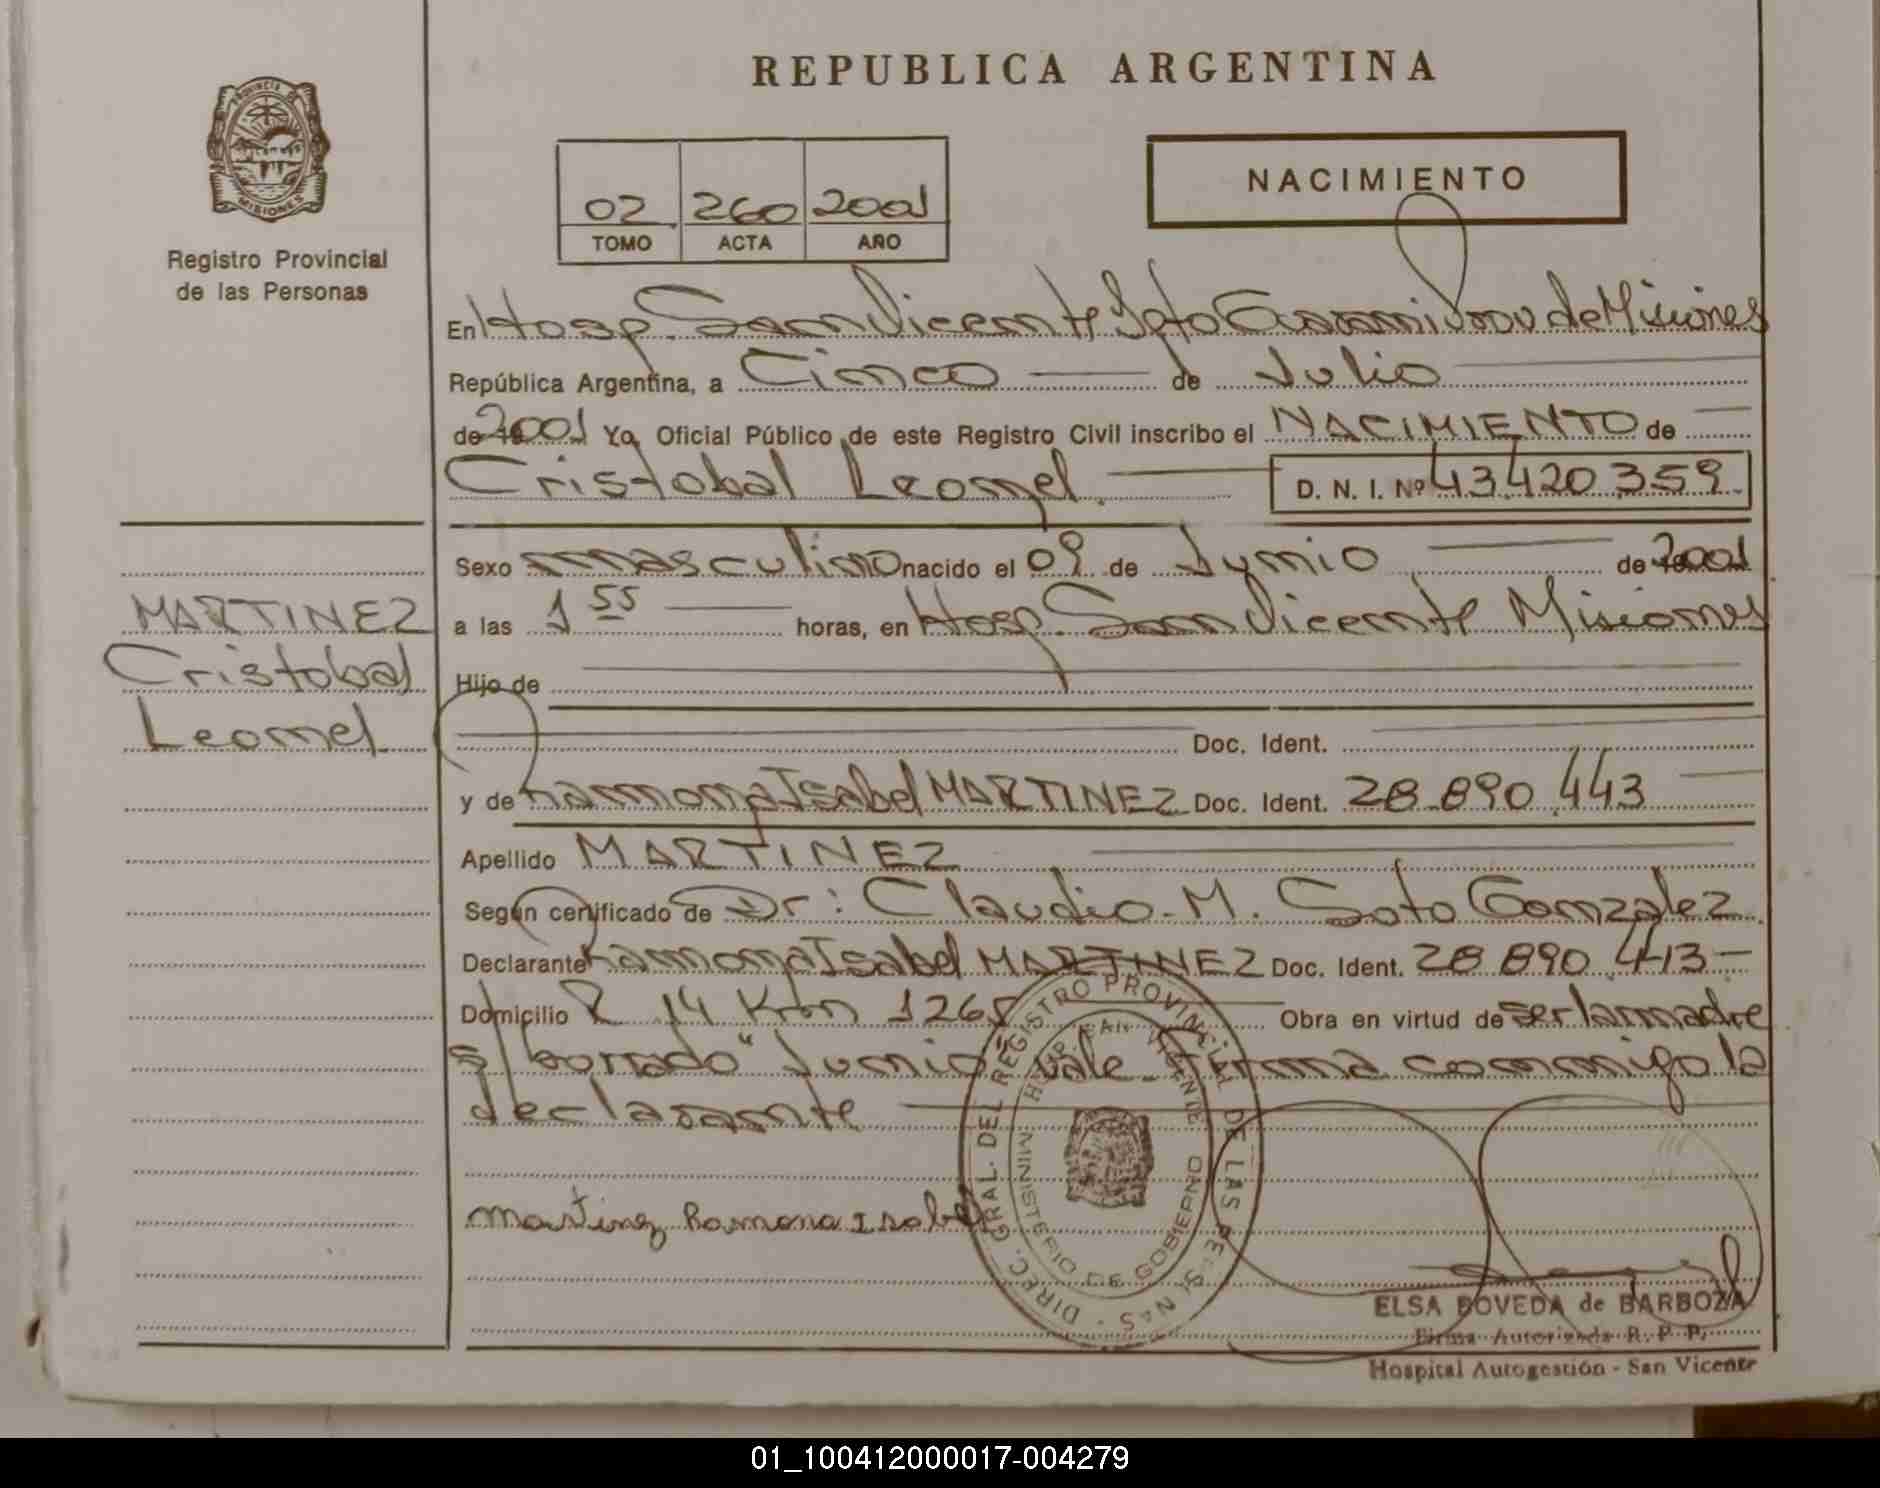 REPUBLICA ARGENTINA
PROVINCIA DE
MISIONES
Registro Provincial
de las Personas
02 260 2001
TOMO ACTA AÑO
NACIMIENTO
En Hosp. San Vicente, Dpto Guarani Prov de Misiones
República Argentina, a Cinco de Julio
de 19 2001 Yo, Oficial Público de este Registro Civil inscribo el NACIMIENTO de
Cristobal Leonel D. N. I. Nº 43420359
Sexo masculino nacido el 09 de Junio de 2001
a las 1 55 horas, en Hosp. San Vicente Misiones
Hijo de
Doc. Ident.
y de Ramona Isabel MARTINEZ Doc. Ident. 28 890 443
Apellido MARTINEZ
Según certificado de Dr: Claudio M. Soto Gonzalez
Declarante Ramona Isabel MARTINEZ Doc. Ident. 28 890 443
Domicilio R 14 Km 1265 Obra en virtud de ser la madre
s/ borrado "Junio" vale. Firma conmigo la
declarante
MARTINEZ
Cristobal
Leonel
Martinez Ramona Isabel
DIREC. GRAL. DEL REGISTRO PROVINCIAL DE LAS PERSONAS
HOSP. SAN VICENTE
MINISTERIO DE GOBIERNO
ELSA BOVEDA de BARBOZA
Firma Autorizada R. P. P.
Hospital Autogestión - San Vicente
01_100412000017-004279